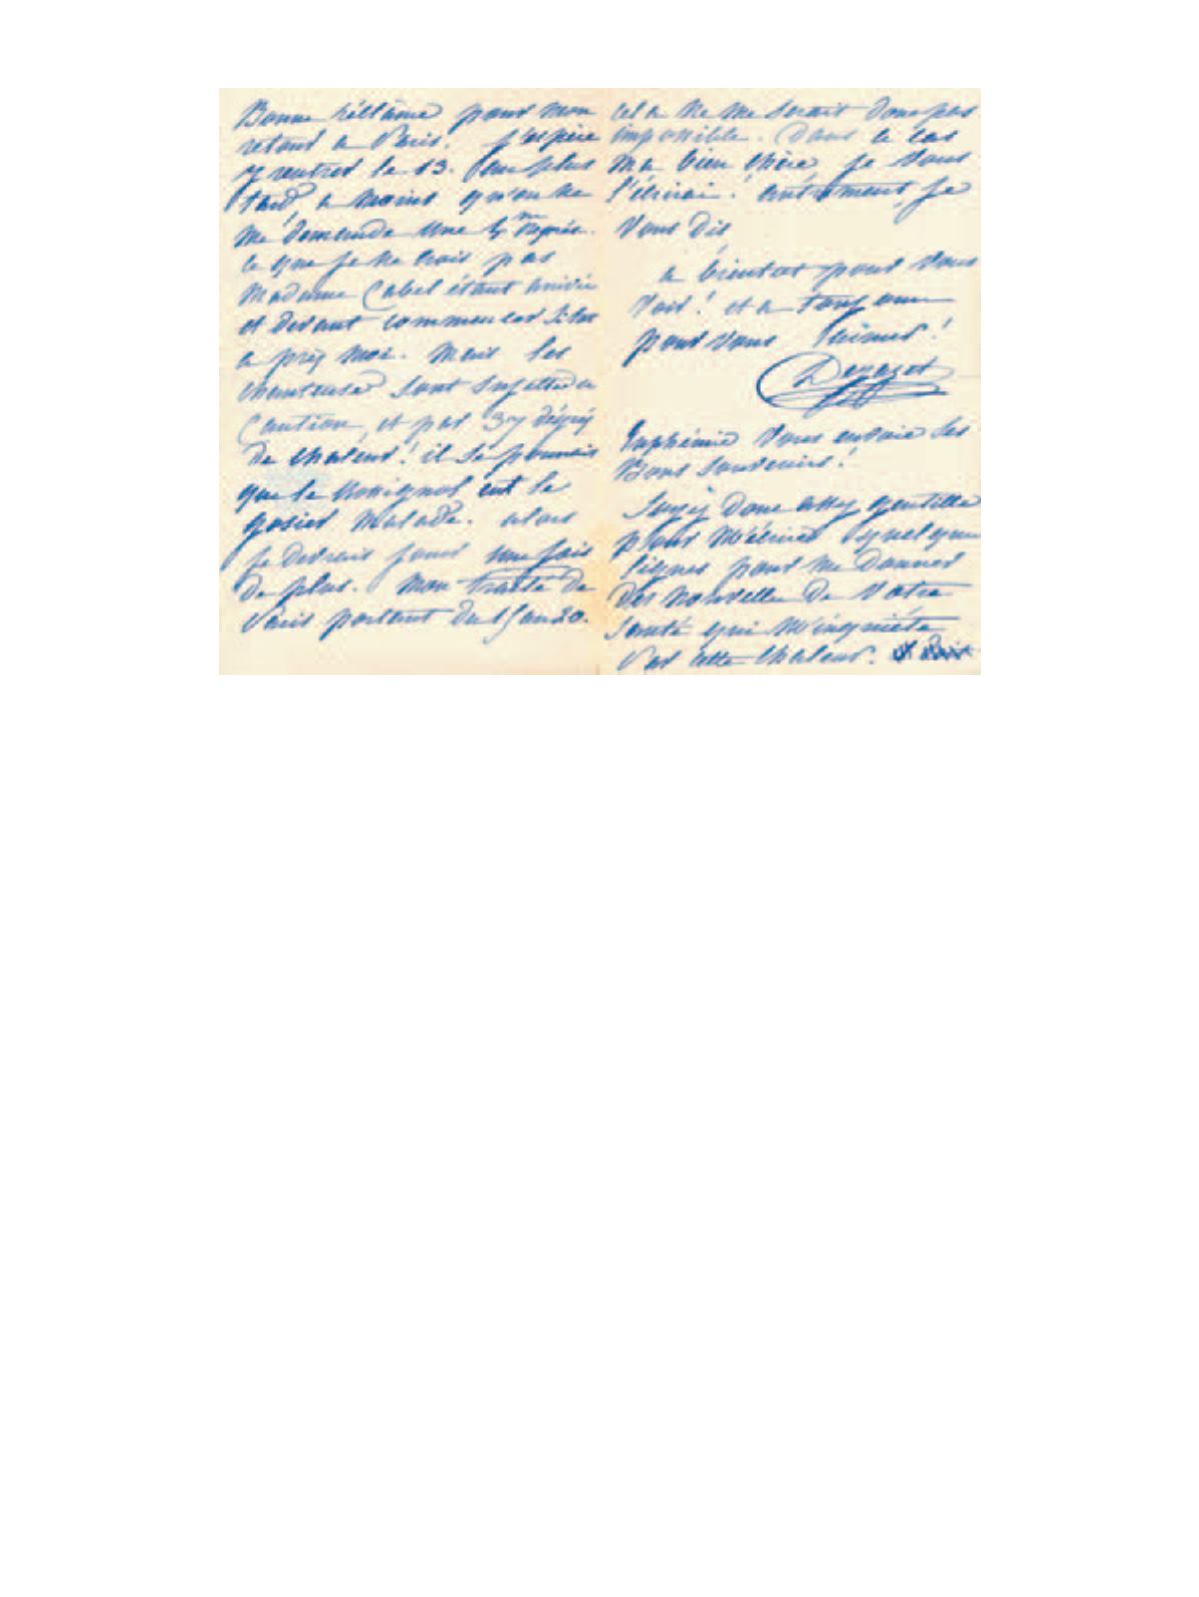 Bonne réclame pour mon
retour a Paris. J'espère
y rentrer le 13. au plus
tard a moins qu'on ne
me demande une 4me représ.
ce que je ne crois pas
Madame Cabel étant arrivée
et devant commencer sitot
après moi. Mais les
chanteuses sont sujettes a
caution, et par 37 dégrés
de chaleur! il se pourrait
que le Rossignol eut le
gosier malade. alors
je devrais jouer une fois
de plus. Mon traité de
Paris portant du 15 au 20.
cela ne me serait donc pas
impossible. Dans ce cas
ma bien chère, je vous
l'écrirai! autrement, je
vous dis
a bientot pour vous
voir! et a toujours
pour vous aimer!
Dejazet
Euphémie vous envoie ses
Bons souvenirs!
Soyez donc assez gentille
pour m'écrire quelques
lignes pour me donner
des nouvelles de votre
santé qui m'inquiéte
par cette chaleur.